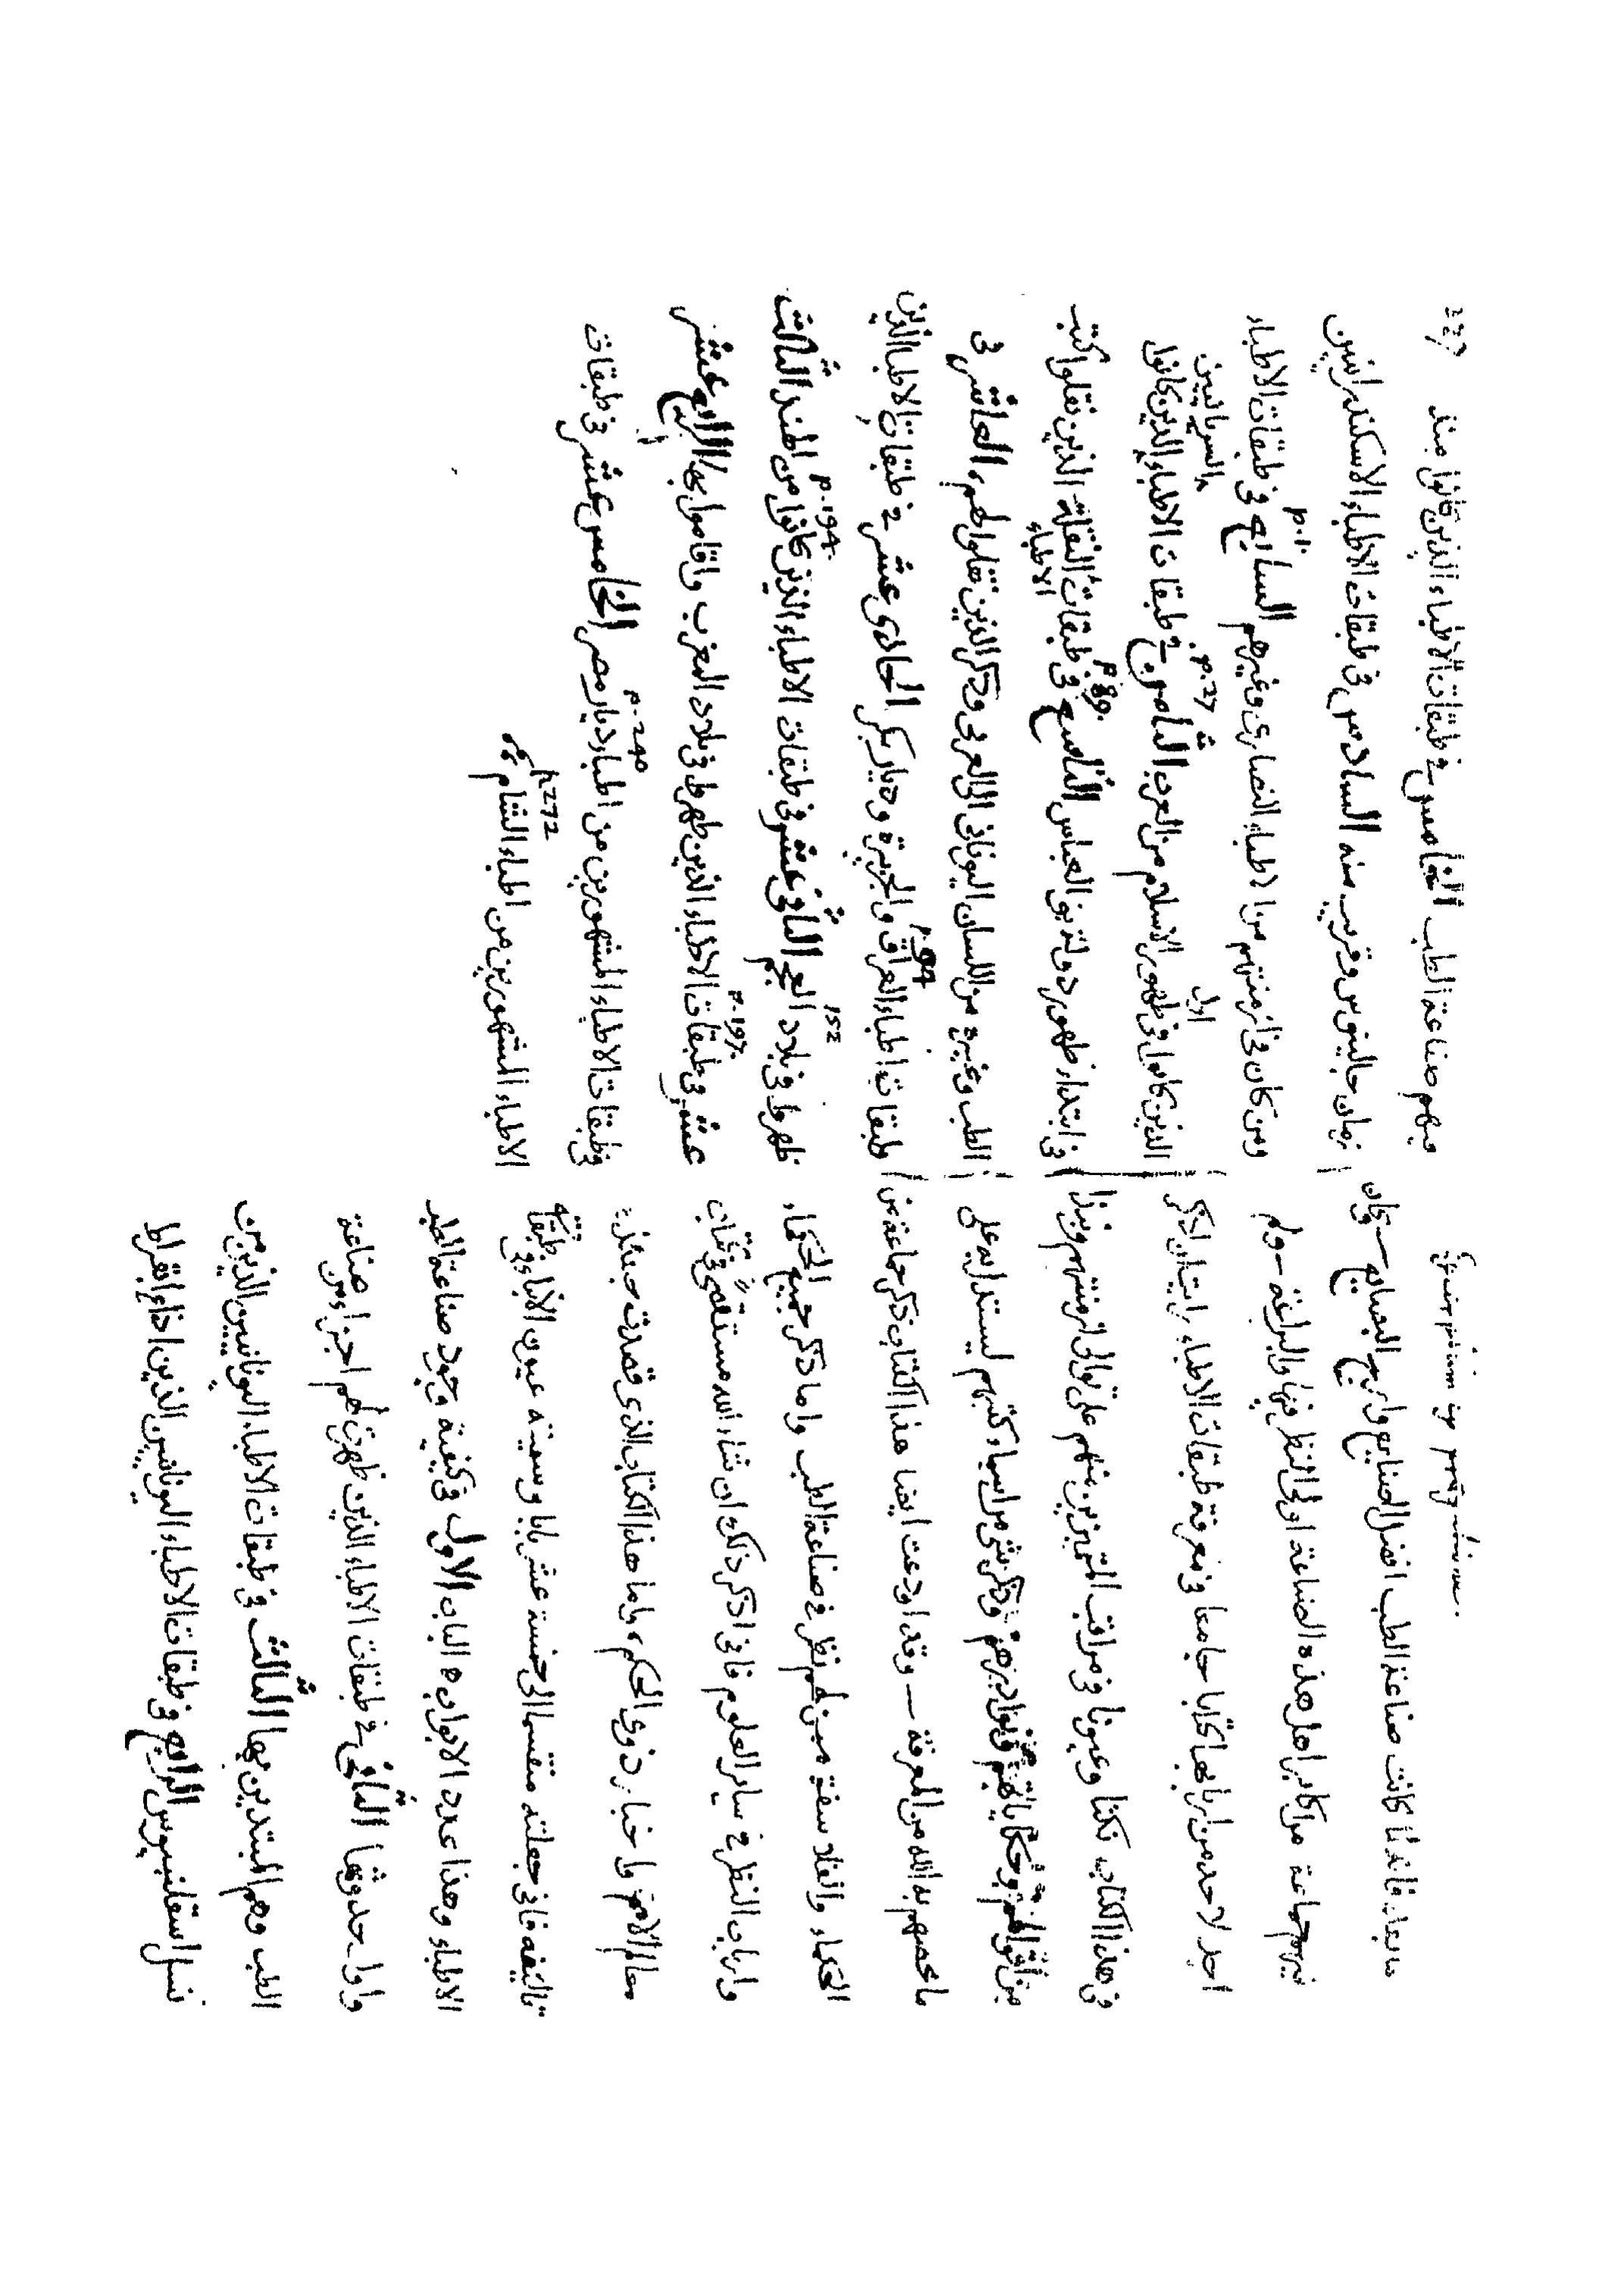 ما بعد فانه لما كانت صناعة الطب افضل الصنايع واربح البضايع — وكان
فيهم جماعة من اكابر اهل هذه الصناعة اولى النظر فيها والبراعة — ولم
اجد لاحد من اربابها كتابا جامعا في معرفة طبقات الاطباء رايت ان اذكر
في هذا الكتاب نكتا وعيونا في مراتب المتميزين منهم على توالى ازمنتهم ونبذا
من اقوالهم وحكاياتهم ونوادرهم وذكر شي من اسماء كتبهم ليستدل به على
ما خصهم به الله من المعرفة — وقد اودعت ايضا هذا الكتاب ذكر جماعة من
الحكماء والفلاسفة ممن لهم نظر في صناعة الطب واما ذكر جميع الحكماء
وارباب النظر في ساير العلوم فاني اذكر ذلك ان شاء الله مستقصى في كتاب
معالم الامم واخبار ذوي الحكم، واما هذا الكتاب الذي قصدت حينئذ
تاليفه فاني جعلته منقسما الى خمسة عشر بابا وسميته عيون الانباء في طبقات
الاطباء وهذا عدد الابواب ه الباب الاول في كيفية وجود صناعة الطب
واول حدوثها الثاني في طبقات الاطباء الذين ظهرت لهم اجزاء من صناعة
الطب وهم المبتدين بها الثالث في طبقات الاطباء اليونانيين الذين من
نسل اسقلنبيوس الرابع في طبقات الاطباء اليونانيين الذين اذاع ابقراط
فيهم صناعة الطب الخامس في طبقات الاطباء الذين كانوا منذ
زمان جالينوس وقريب منه السادس في طبقات الاطباء الاسكندرانيين
ومن كان في ازمنتهم من الاطباء النصارى وغيرهم السابع في طبقات الاطباء
الذين كانوا في اول ظهور الاسلام من العرب الثامن في طبقات الاطباء السريانيين الذين كانوا
في ابتداء ظهور دولة بني العباس التاسع في طبقات الاطباء النقلة الذين نقلوا كتب
الطب وغيره من اللسان اليوناني الى العربي وذكر الذين نقلوا لهم، العاشر في
طبقات اطباء العراق والجزيرة وديار بكر الحادى عشر في طبقات الاطباء الذين
ظهروا في بلاد العجم الثاني عشر في طبقات الاطباء الذين كانوا من الهند الثالث
عشر في طبقات الاطباء الذين ظهروا في بلاد المغرب واقاموا بها الرابع عشر
في طبقات الاطباء المشهورين من اطباء ديار مصر الخامس عشر في طبقات
الاطباء المشهورين من اطباء الشام